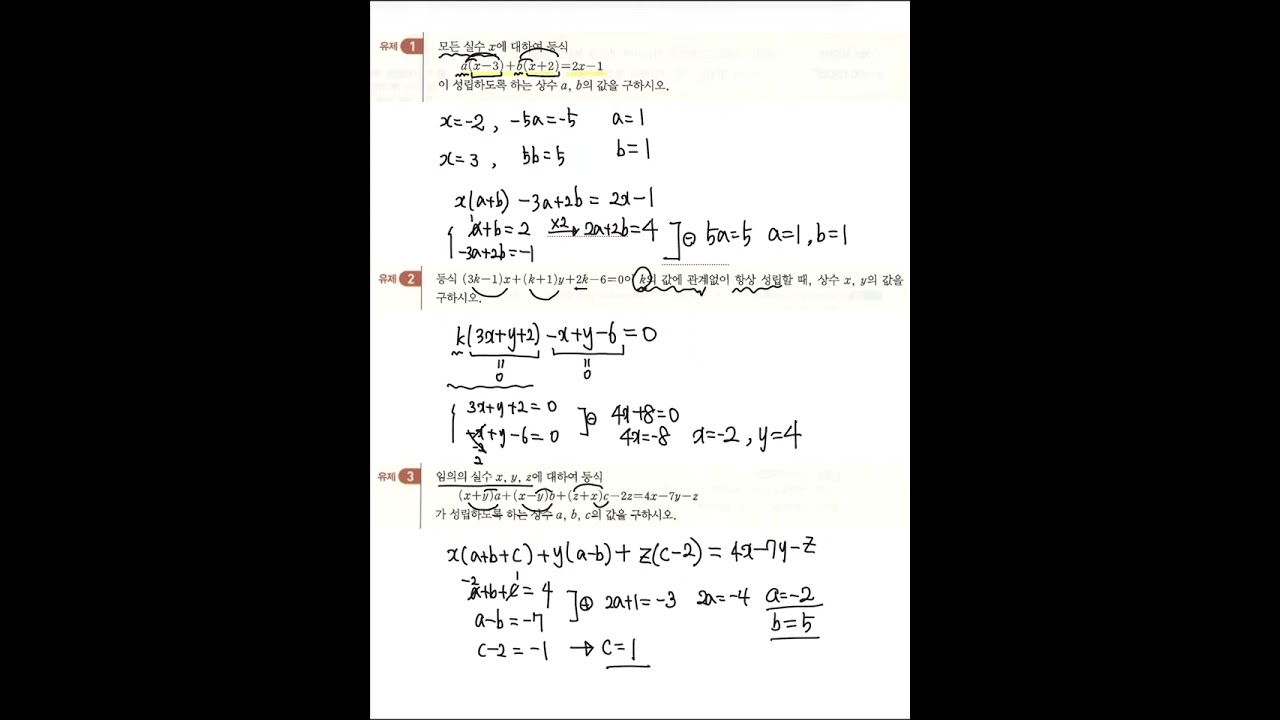 유제 1 모든 실수 x에 대하여 등식
a(x-3)+b(x+2)=2x-1
이 성립하도록 하는 상수 a, b의 값을 구하시오.
x=-2, -5a=-5 a=1
x=3, 5b=5 b=1
x(a+b) -3a+2b = 2x-1
a+b=2 ×2→ 2a+2b=4 ⊖ 5a=5 a=1, b=1
1
-3a+2b=-1
유제 2 등식 (3k-1)x+(k+1)y+2k-6=0이 k의 값에 관계없이 항상 성립할 때, 상수 x, y의 값을
구하시오.
k(3x+y+2) -x+y-6=0
= =
0 0
3x+y+2=0 ⊖ 4x+8=0
-x+y-6=0 4x=-8 x=-2, y=4
-2
2
유제 3 임의의 실수 x, y, z에 대하여 등식
(x+y)a+(x-y)b+(z+x)c-2z=4x-7y-z
가 성립하도록 하는 상수 a, b, c의 값을 구하시오.
x(a+b+c)+y(a-b)+z(c-2)=4x-7y-z
-2 1
a+b+c=4 ⊕ 2a+1=-3 2a=-4 a=-2
a-b=-7 b=5
c-2=-1 → c=1